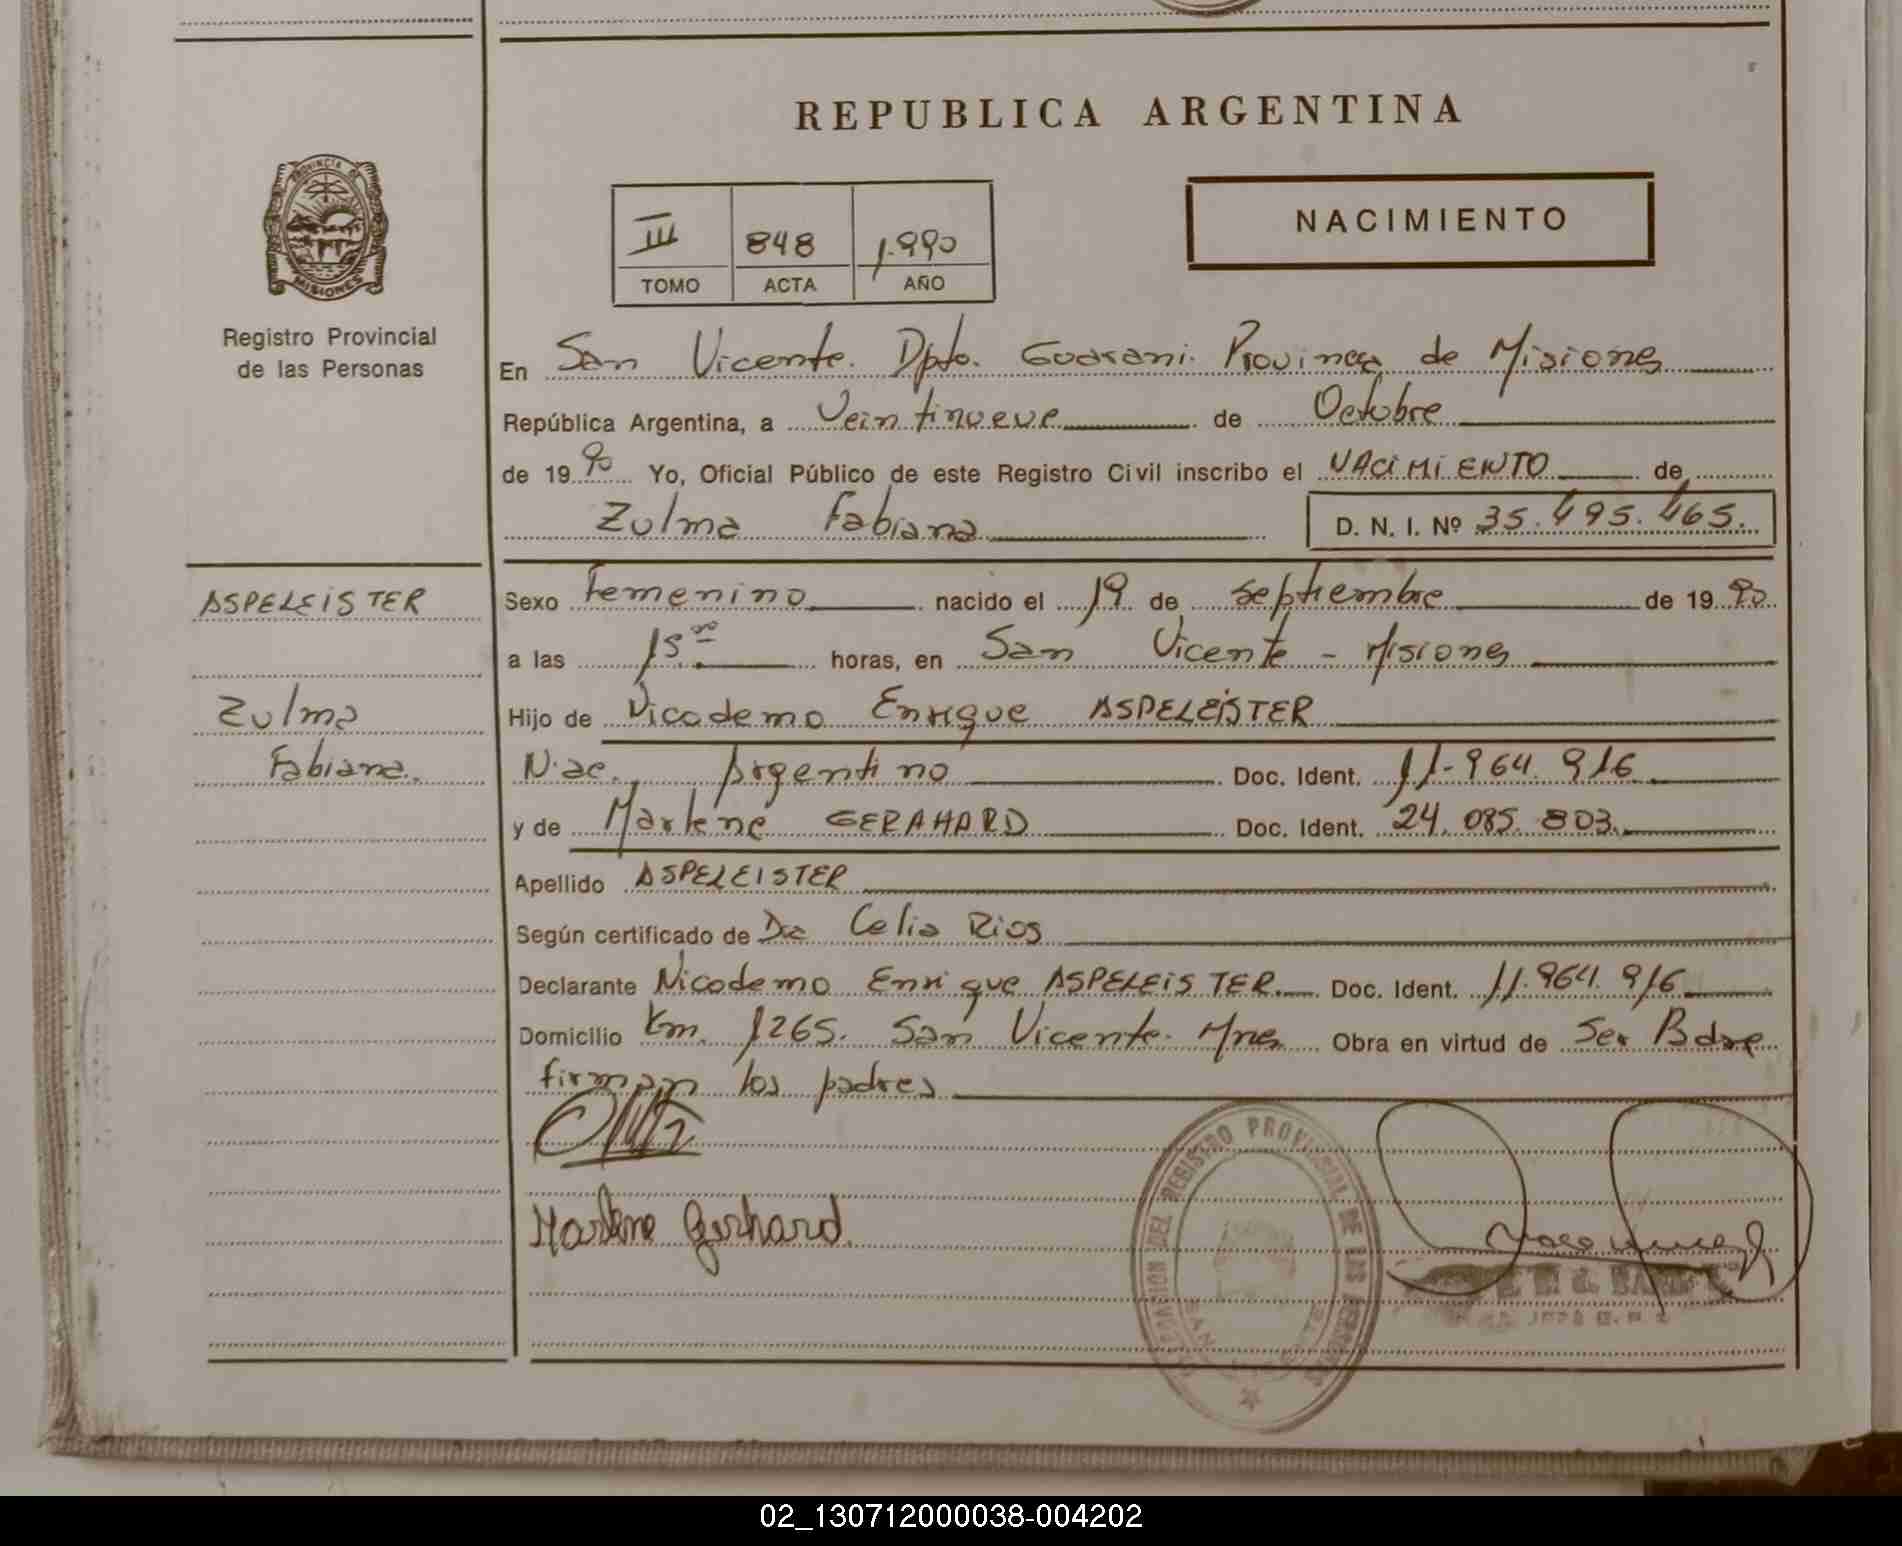 REPUBLICA ARGENTINA
PROVINCIA DE
MISIONES
Registro Provincial
de las Personas
III 848 1.990
TOMO ACTA AÑO
NACIMIENTO
En San Vicente. Dpto. Guarani. Provincia de Misiones
República Argentina, a Veintinueve de Octubre
de 1990 Yo, Oficial Público de este Registro Civil inscribo el NACIMIENTO de
Zulma Fabiana D. N. I. Nº 35.495.465.
ASPELEISTER
Zulma
Fabiana.
Sexo Femenino nacido el 19 de septiembre de 1990
a las 15.00 horas, en San Vicente - Misiones
Hijo de Nicodemo Enrique ASPELEISTER
Nac. Argentino Doc. Ident. 11.964.916
y de Marlene GERAHARD Doc. Ident. 24.085.803.
Apellido ASPELEISTER
Según certificado de Dra Celia Rios
Declarante Nicodemo Enrique ASPELEISTER. Doc. Ident. 11.964.916
Domicilio Km. 1265. San Vicente. Mnes Obra en virtud de Ser Padre
firman los padres
Marlene Gerhard.
DEL REGISTRO PROVINCIAL DE LAS PERSONAS
SAN VICENTE
02_130712000038-004202